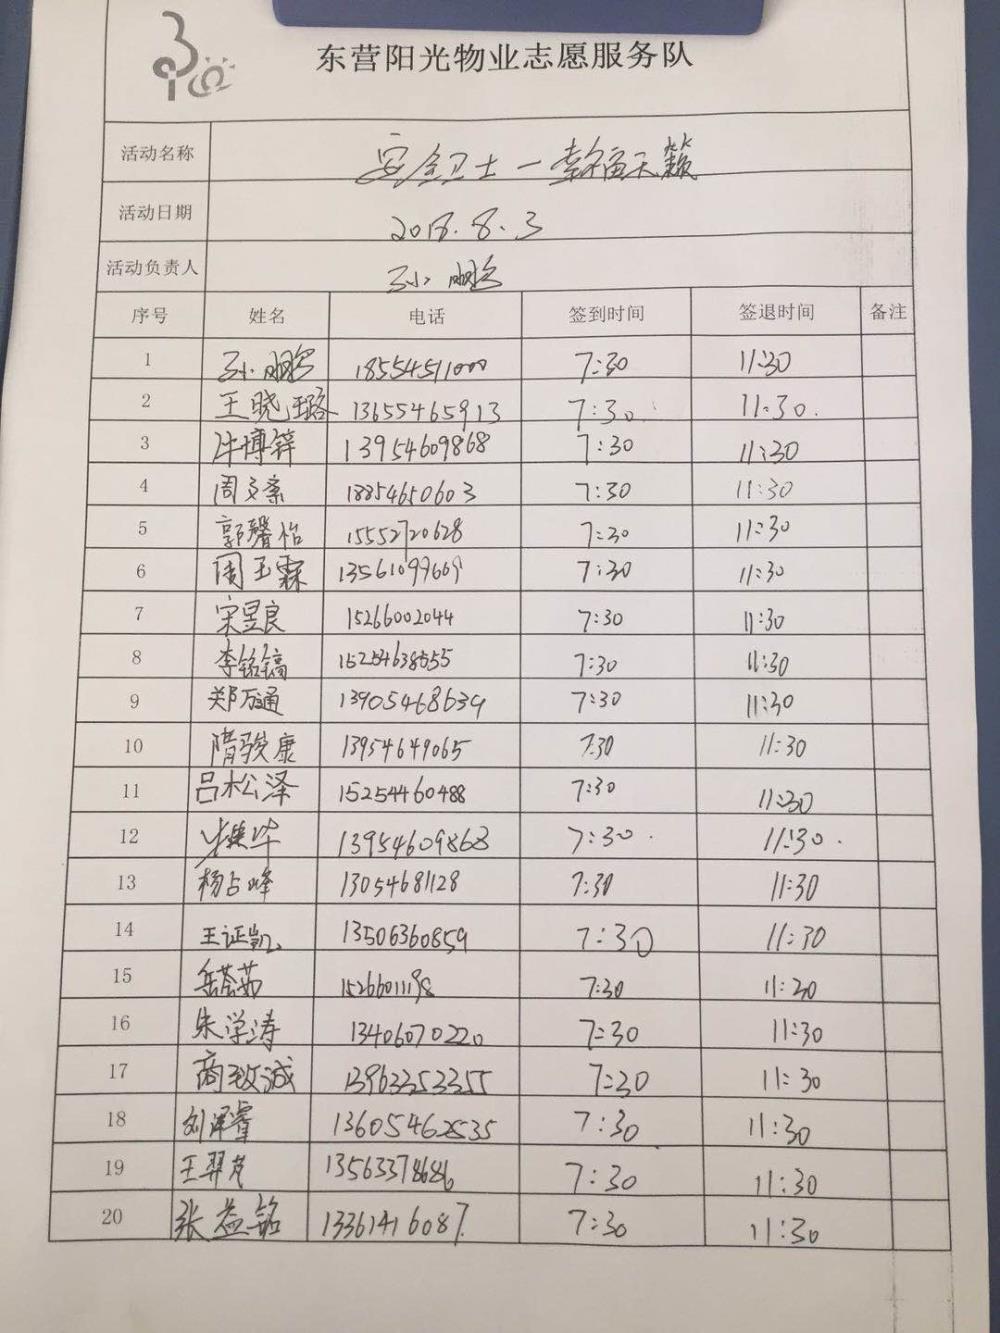 东营阳光物业志愿服务队
活动名称 安全卫士一幸福天籁
活动日期 2018.8.3
活动负责人 孙鹏
序号 姓名 电话 签到时间 签退时间 备注
1 孙鹏 18554511000 7:30 11:30
2 王晓璐 13655465913 7:30 11:30.
3 牛博锌 13954609868 7:30 11:30
4 周文豪 18854650603 7:30 11:30
5 郭馨怡 15552720628 7:30 11:30
6 周玉霖 13561099669 7:30 11:30
7 宋昱良 15266002044 7:30 11:30
8 李铭镐 15254638555 7:30 11:30
9 郑万通 13905468639 7:30 11:30
10 隋骏康 13954649065 7:30 11:30
11 吕松泽 15254460488 7:30 11:30
12 13954609868 7:30 11:30
13 杨占峰 13054681128 7:30 11:30
14 王证凯 13506360859 7:30 11:30
15 岳荟茹 15266011198 7:30 11:30
16 朱学涛 13406070220 7:30 11:30
17 商致诚 13963353355 7:30 11:30
18 刘泽睿 13605462535 7:30 11:30
19 王羿芃 13563378686 7:30 11:30
20 张益铭 13361416087 7:30 11:30